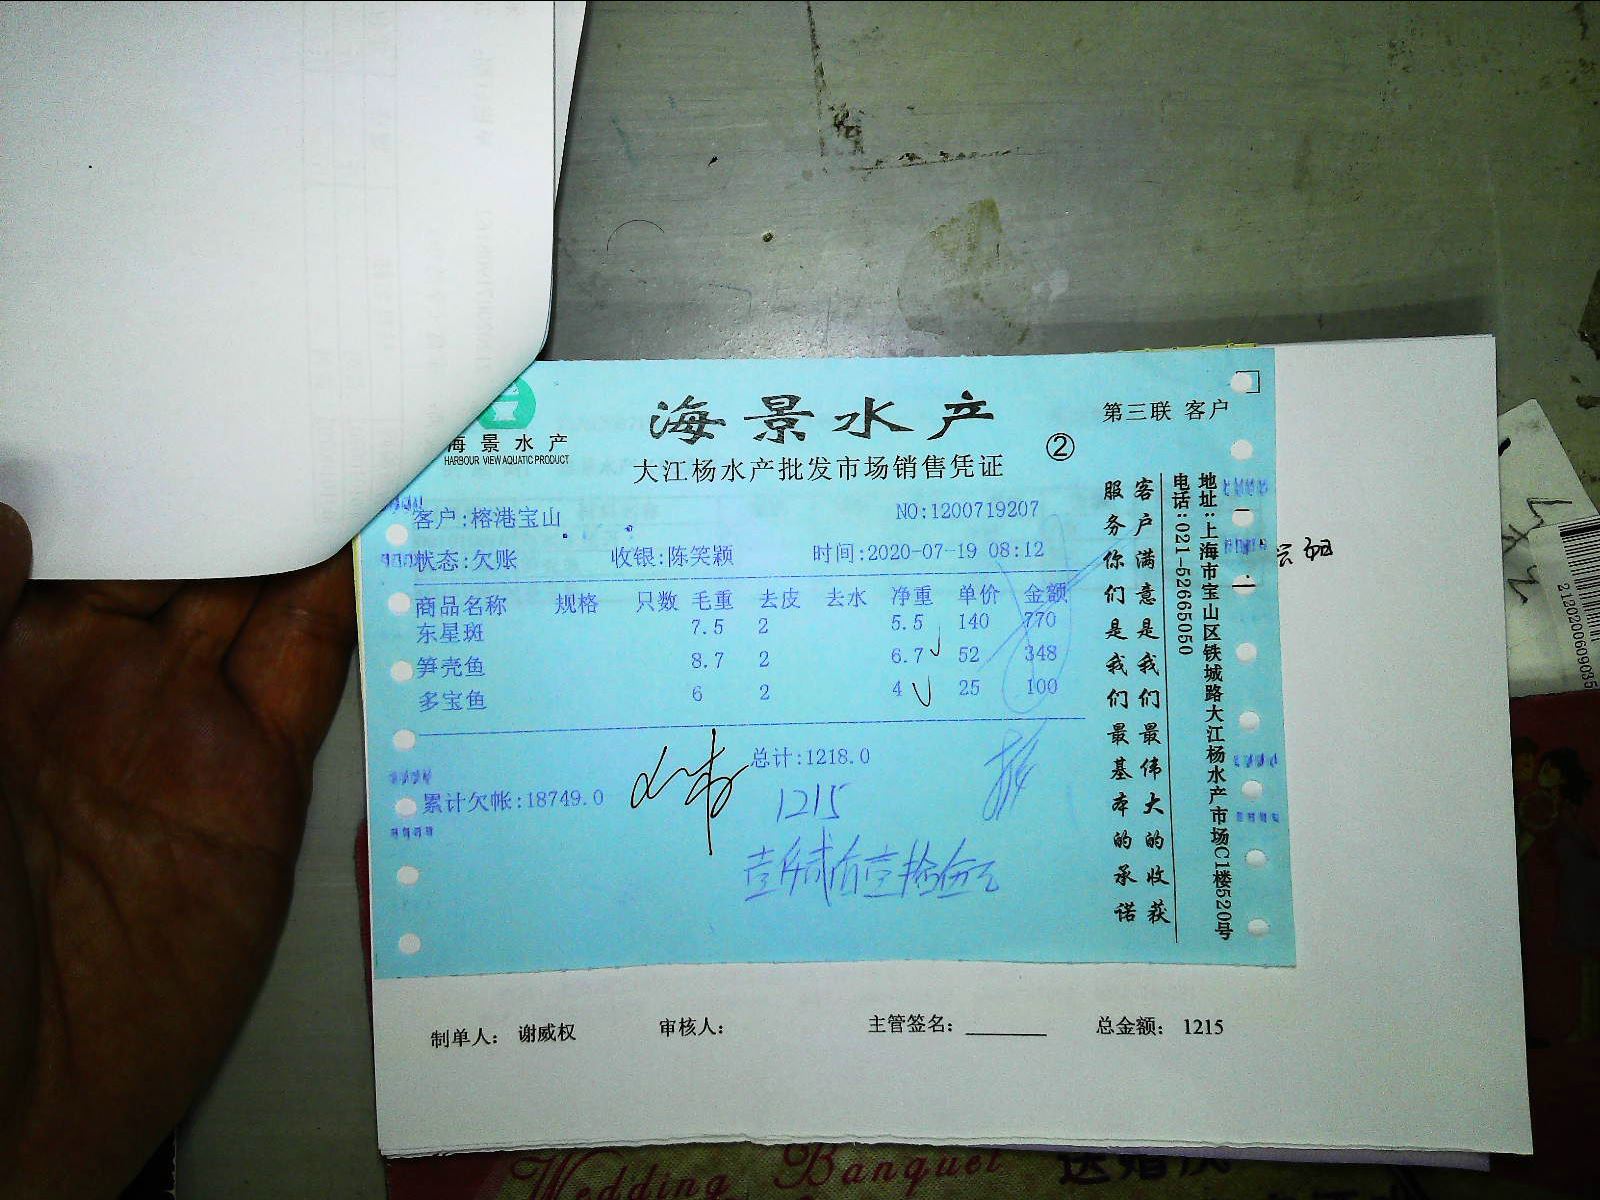 海景水产
HARBOUR VIEW AQUATIC PRODUCT
海景水产
大江杨水产批发市场销售凭证
②
第三联 客户
客户:榕港宝山
NO:1200719207
状态:欠账 收银:陈笑颖 时间:2020-07-19 08:12
商品名称 规格 只数 毛重 去皮 去水 净重 单价 金额
东星斑 7.5 2 5.5 140 770
笋壳鱼 8.7 2 6.7 52 348
多宝鱼 6 2 4 25 100
总计:1218.0
累计欠帐:18749.0
1215
壹仟贰佰壹拾伍元
客户满意是我们最伟大的收获
服务你们是我们最基本的承诺
地址:上海市宝山区铁城路大江杨水产市场C1楼520号
电话:021-52665050
制单人: 谢威权 审核人: 主管签名: 总金额: 1215
2120200609035
Wedding Banquet